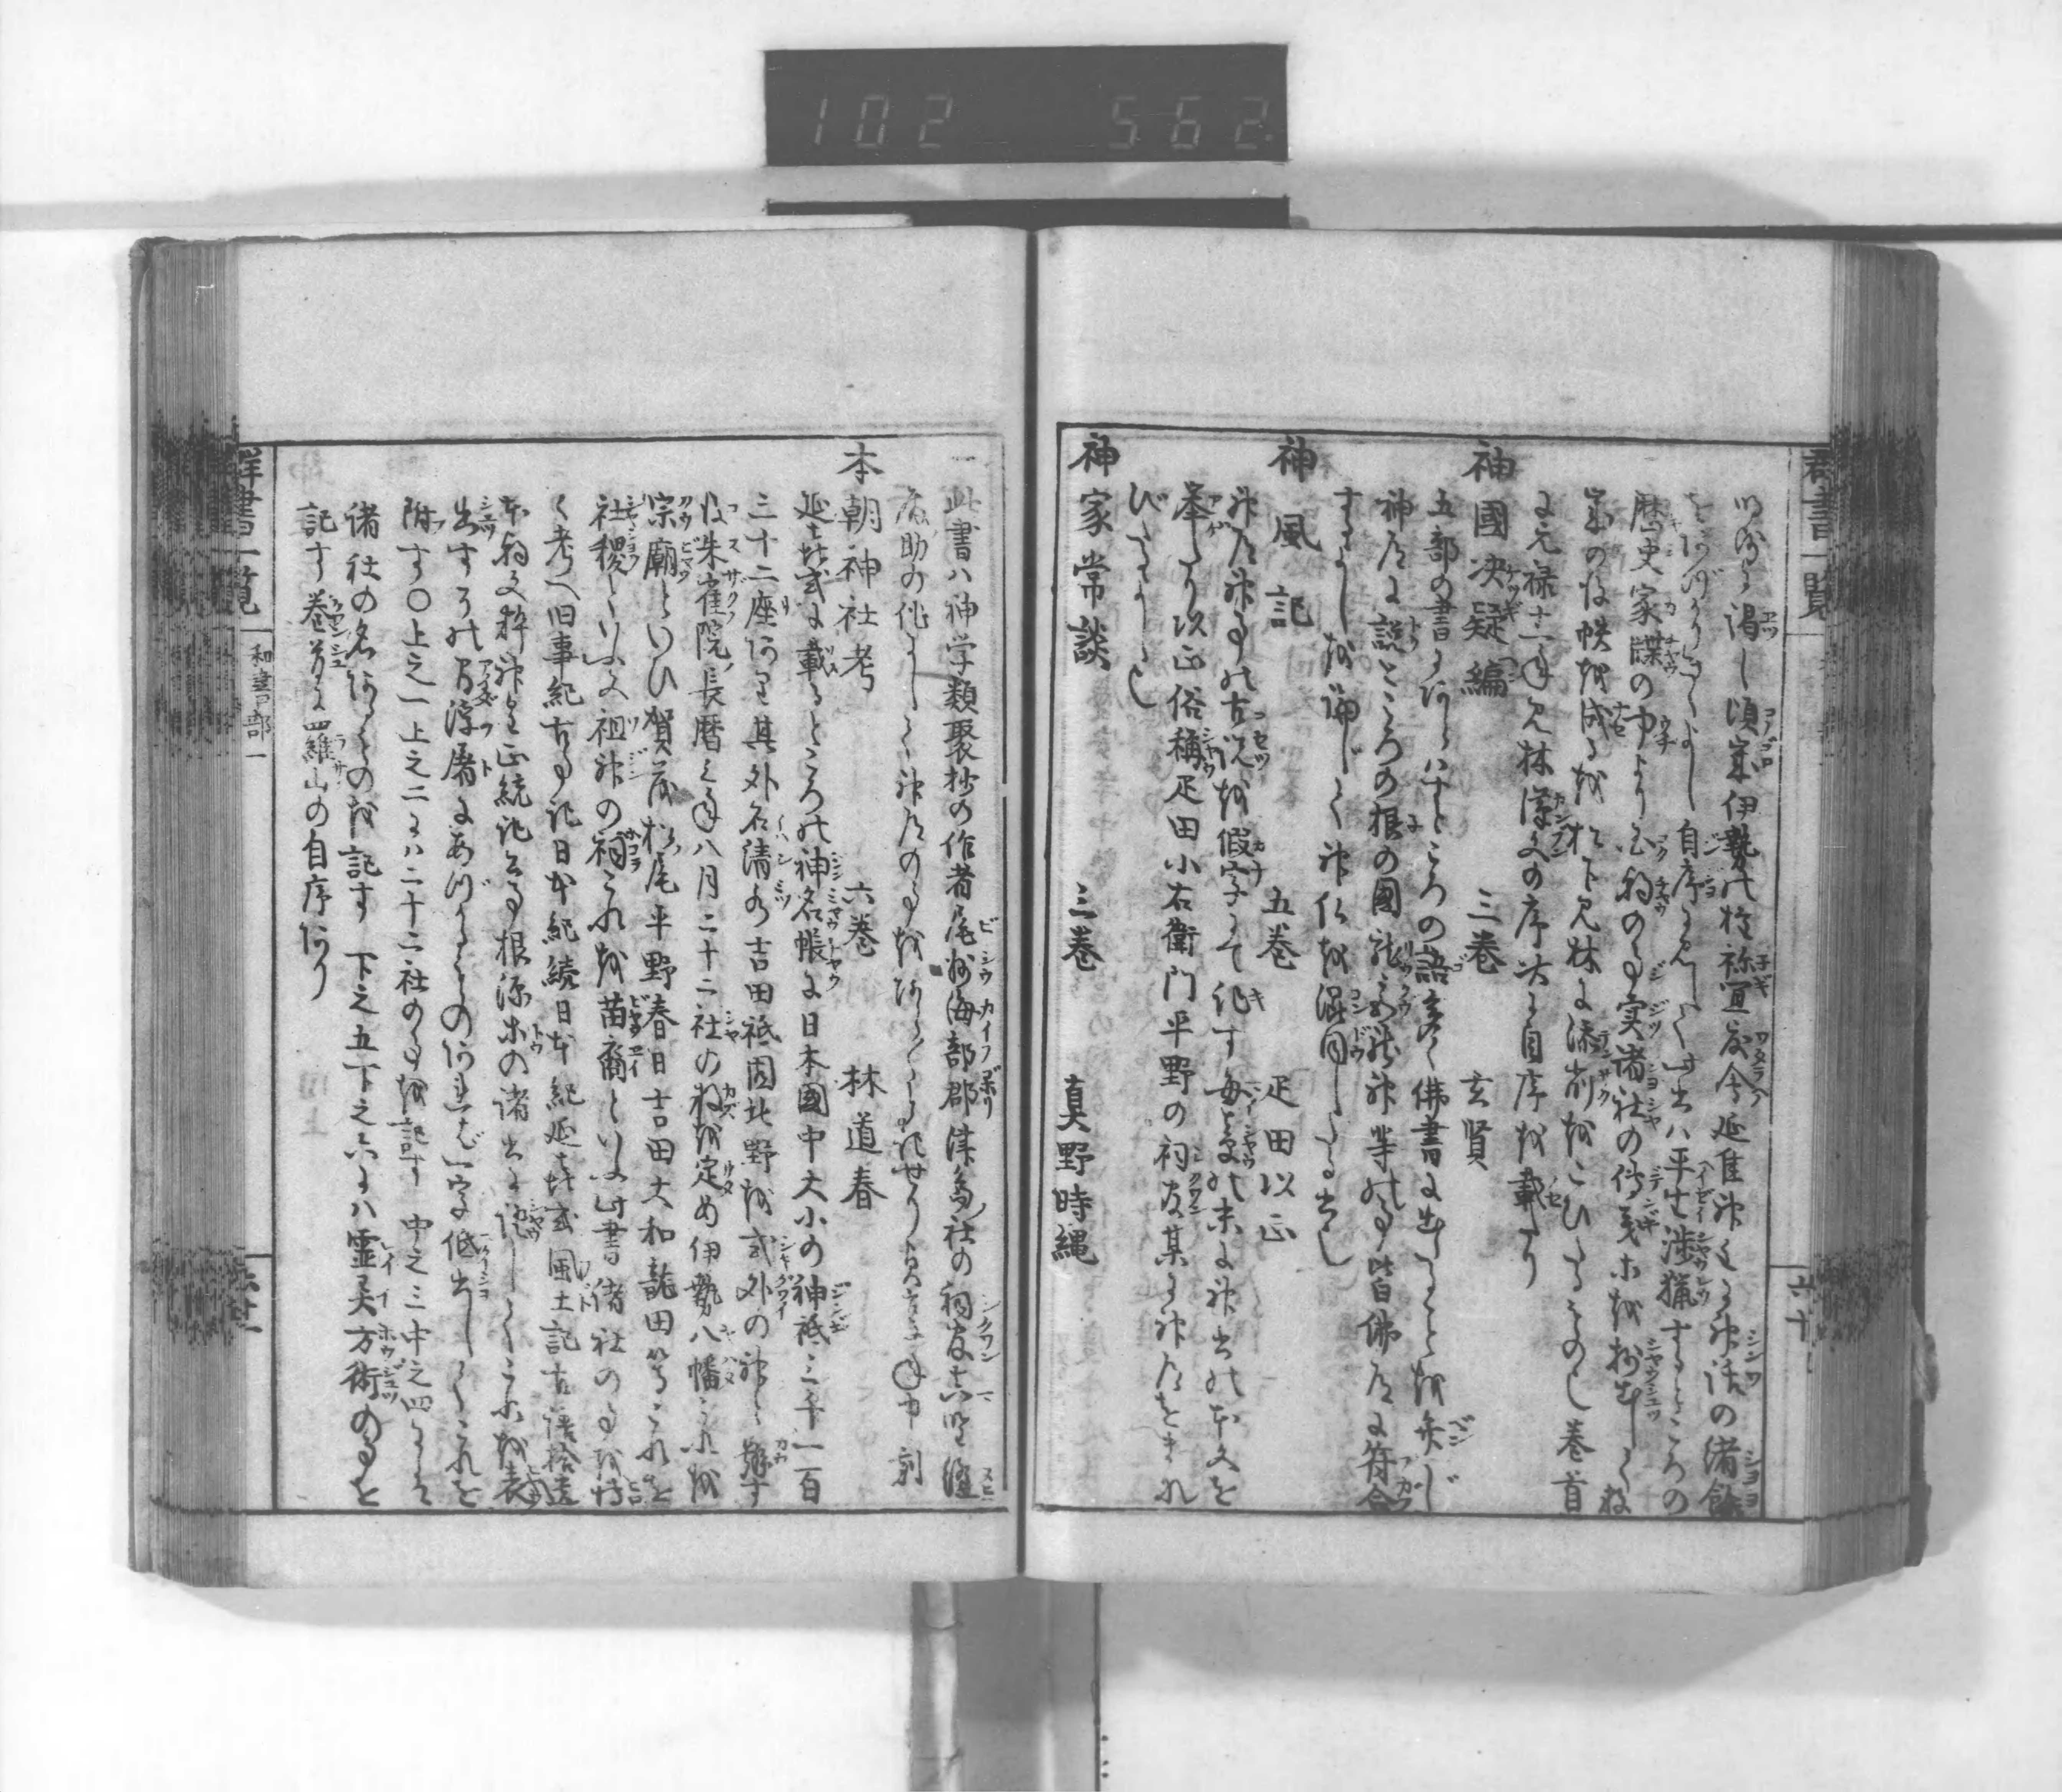 102 562
群書一覧
明師に謁し頃年伊勢の権祢宜度会延佳神主の神話の緒餘
をあづかりきくよし自序に見へたり此書ハ平生渉猟するところの
歴史家牒の中より本朝の事実諸社の伝義等を抄出して数
年の後帙を成るを松下見林に添削をこひたるもの也巻首
に元禄十一年見林漢文の序次に自序を載たり
神國决疑編 三巻 玄賢
五部の書にあらハすところの語多く佛書に出ることを弁じ
神道に説ところの根の國龍宮龍神等の事皆佛道に符合
するよしを論じて神仏を混同したる書也
神風記 五巻 疋田以正
神道神事の古説を假字にて紀す毎章の末に神書の本文を
挙たり以正俗稱疋田小右衛門平野の祠官某に神道をまな
びたるよし也
神家常談 三巻 真野時縄
六十
一此書ハ神学類聚抄の作者尾州海部郡津島社の祠官
の作にして神道の事をあらく記せり
本朝神社考 六巻 林道春
延喜式に載るところの神名帳に日本國中大小の神祇三千一百
三十二座あり其外石清水吉田祇園北野を式外の神と号す
後朱雀院長暦三年八月二十二社の数を定め伊勢八幡これを
宗廟といひ賀茂松尾平野春日吉田大和龍田等これを
社稷といふ又祖神の祠これを苗裔といふ此書諸社の事を悉
く考へ旧事紀古事記日本紀続日本紀延喜式風土記古語拾遺
本朝文粋神皇正統記公事根源等の諸書に証してこれを表
出すその間浮屠にあづかるものあれば一字低書してこれを
附す〇上之一上之二にハ二十二社の事を記す中之三中之四にハ
諸社の名あるものを記す下之五下之六にハ霊異方術の事を
記す巻首に羅山の自序あり
群書一覧
和書部一